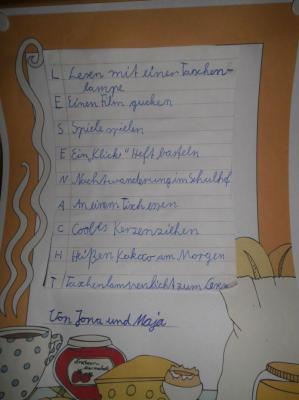 L Lesen mit einer Taschen-
lampe
E Einen Film gucken
S Spiele spielen
E Ein „Klick" Heft basteln
N Nachtwanderung im Schulhof
A An einem Tisch essen
C Cooles Kerzenziehen
H Heißen Kakao am Morgen
T Taschenlampenlicht zum Lesen
Von Jona und Maja
Erdbeer
Marmelade